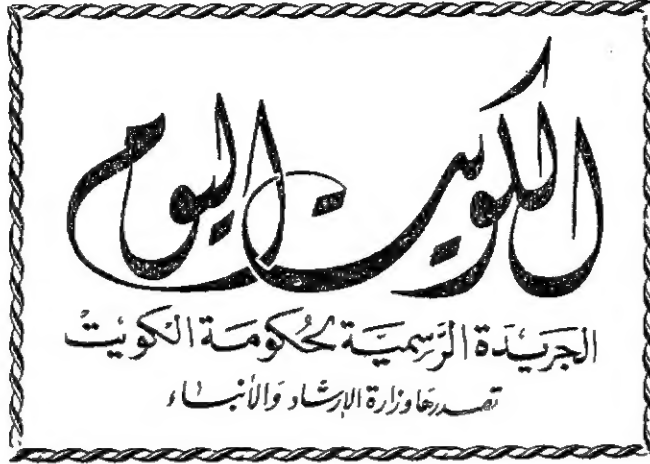 الكويت اليوم
الجريدة الرسمية لحكومة الكويت
تصدرها وزارة الارشاد والأنباء